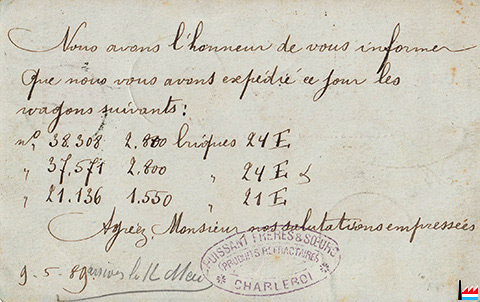 Nous avons l'honneur de vous informer
que nous vous avons expédié ce jour les
wagons suivants:
n°. 38.308 2.800 briques 24 E
„ 37,571 2.800 „ 24 E
„ 21.136 1.550 „ 21 E
Agréez, Monsieur nos salutations empressées
PUISSANT FRÈRES & SŒURS
PRODUITS RÉFRACTAIRES
CHARLEROI
9-5-89 le 12 Mai